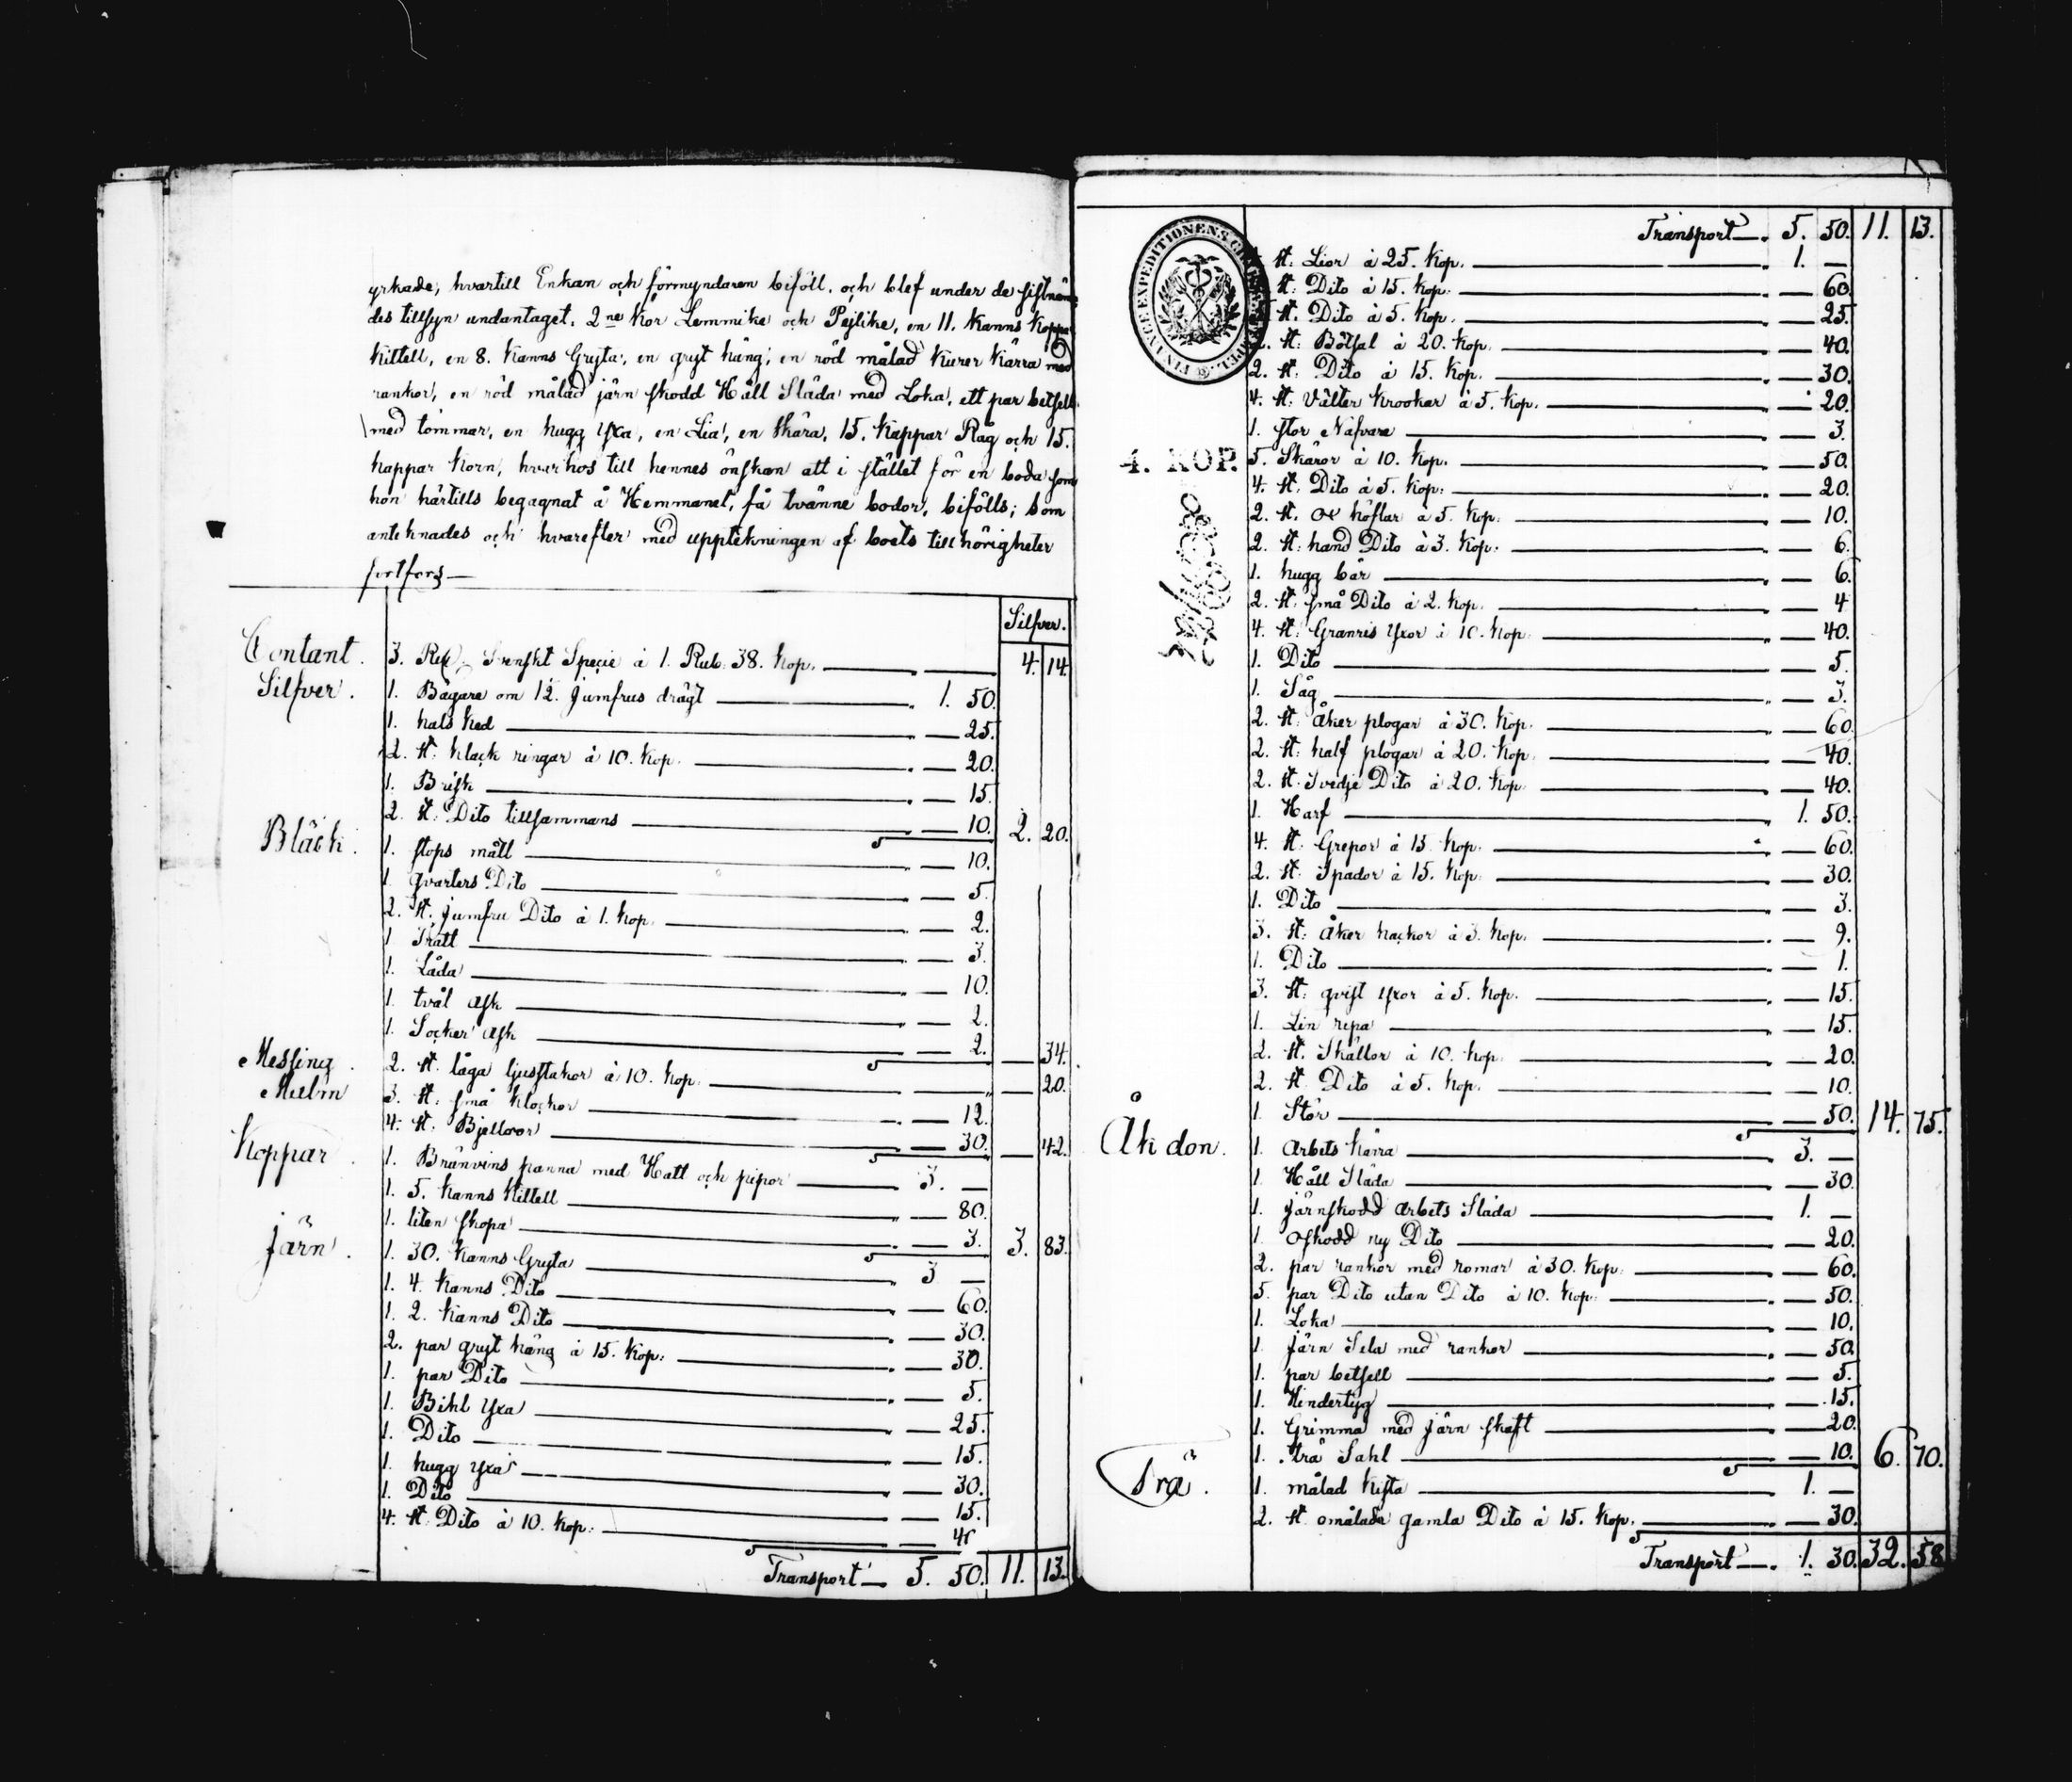 yrkade, hvartill Enkan och förmyndaren biföll, och blef under de sistnäm
des tillsyn undantaget, 2ne Kor Lemmike och Pejlike, en 11. Kanns Koppar
Kittell, en 8. Kanns Gryta, en gryt häng, en röd målad Kurer Kärra med
rankor, en röd målad järn skodd Håll Släda med Loka, ett par betsell
med tömmar, en hugg yxa, en Lia, en Skära, 15. Kappar Råg och 15.
kappar Korn, hvarhos till hennes önskan att i stället för en boda som
hon härtills begagnat å Hemmanet, få tvänne bodor, bifölls; som
anteknades och hvarefter med upptekningen af boets tillhörigheter
fortfors
Silfver.
Contant. 3. Rik. Svenskt Specie à 1. Rub. 38. Kop. 4. 14.
Silfver. 1. Bägare om 12. Jumfrus drägt 1. 50.
1. hals Ked 25.
2. st: klack ringar à 10. Kop. 20.
1. Brisk 15.
2. st: Dito tillsammans 10. 2. 20.
Bläck. 1. stops mått 10.
1. qvarters Dito 5.
2. st. jumfru Dito à 1. Kop. 2.
1. Tratt 3.
1. Låda 10.
1. tvål ask 2.
1. Socker ask 2. 34.
Messing. 2. st. låga ljusstakor à 10. Kop. 20.
Malm 3. st: små klockor 12.
4. st. Bjellror 30. 42.
Koppar. 1. Bränvins panna med Hatt och pipor 3. —
1. 5. Kanns Kittell 80.
1. liten skopa 3. 3. 83.
järn. 1. 30. Kanns Gryta 3 —
1. 4. Kanns Dito 60.
1. 2. Kanns Dito 30.
2. par gryt häng à 15. Kop: 30.
1. par Dito 5.
1. Bihl yxa 25.
1. Dito 15.
1. hugg yxa 30.
1. Dito 15.
4. st. Dito à 10. Kop: 40
Transport 5. 50. 11. 13.
FINANCE EXPEDITIONENS
4. KOP.
Transport 5. 50. 11. 13.
st: Lior à 25. Kop. 1. —
st: Dito à 15. Kop: 60.
5. st. Dito à 5. Kop. 25.
2. st: Bötsal à 20. Kop. 40.
2. st: Dito à 15. Kop. 30.
4. st: Välter Krookar à 5. Kop. 20.
1. stor Nafvare 3.
5. Skäror à 10. Kop. 50.
4. st: Dito à 5. Kop: 20.
2. st. ox höflar à 5. Kop: 10.
2. st: hand Dito à 3. Kop: 6.
1. hugg bär 6.
2. st. små Dito à 2. Kop. 4
4. st: Granris yxor à 10. Kop: 40.
1. Dito 5.
1. Såg 3.
2. st: åker plogar à 30. Kop. 60.
2. st: half plogar à 20. Kop. 40.
2. st. Svedje Dito à 20. Kop: 40.
1. Harf 1. 50.
4. st: Grepor à 15. Kop. 60.
2. st. Spador à 15. Kop. 30.
1. Dito 3.
3. st: åker hackor à 3. Kop. 9.
1. Dito 1.
3. st: qvist yxor à 5. Kop. 15.
1. Lin repa 15.
2. st. Skällor à 10. Kop. 20.
2. st: Dito à 5. Kop. 10.
1. Stör 50. 14. 75.
Åkdon. 1. arbets kärra 3. —
1. Håll Släda 30.
1. järnskodd arbets Släda 1. —
1. oskodd ny Dito 20.
2. par rankor med romar à 30. Kop: 60.
5. par Dito utan Dito à 10. Kop: 50.
1. Loka 10.
1. järn Sela med rankor 50.
1. par betsell 5.
1. Hindertyg 15.
1. Grimma med järn skaft 20.
1. trä Sahl 10. 6. 70.
Trä. 1. målad kista 1. —
2. st. omålade gamla Dito à 15. Kop. 30.
Transport 1. 30. 32. 58